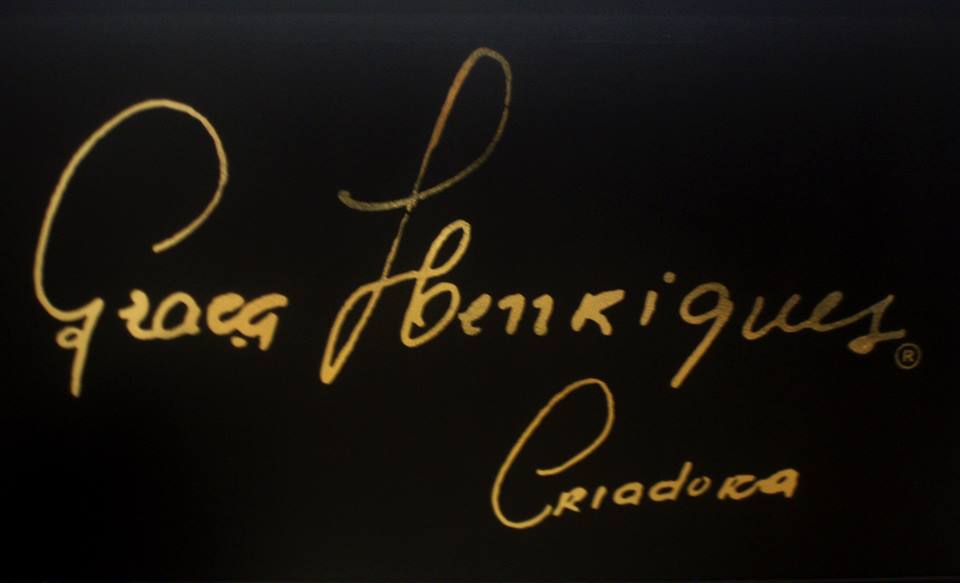 Graça Henriques®
Criadora